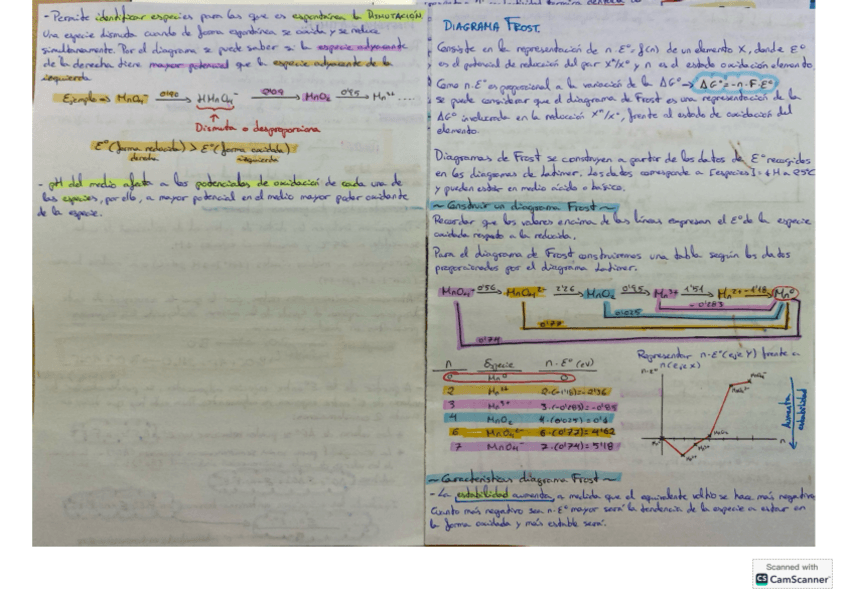 - Permite identificar especies para las que es espontánea la DISMUTACIÓN
Una especie dismuta cuando de forma espontánea se oxida y se reduce
simultáneamente. Por el diagrama se puede saber si la especie adyacente
de la derecha tiene mayor potencial que la especie adyacente de la
izquierda.
Ejemplo => MnO4⁻ 0'90 → HMnO4⁻ → MnO2 0'95 → Mn³⁺ ....
Dismuta o desproporciona
E°(forma reducida) > E°(forma oxidada)
derecha izquierda
- pH del medio afecta a los potenciales de oxidación de cada una de
las especies, por ello, a mayor potencial en el medio mayor poder oxidante
de la especie.
DIAGRAMA FROST.
Consiste en la representación de n·E°, f(n) de un elemento X, donde E°
es el potencial de reducción del par Xⁿ/X° y n es el estado oxidación elemento.
Como n·E° es proporcional a la variación de la ΔG° → ΔG° = -n·F·E°
se puede considerar que el diagrama de Frost es una representación de la
ΔG° involucrada en la reducción Xⁿ/X°, frente al estado de oxidación del
elemento.
Diagramas de Frost se construyen a partir de los datos de E° recogidos
en los diagramas de Latimer. Los datos corresponde a [especies] = 1 M a 25°C
y pueden estar en medio ácido o básico.
~ Construir un diagrama Frost ~
Recordar que los valores encima de las líneas expresan el E° de la especie
oxidada respecto a la reducida.
Para el diagrama de Frost construiremos una tabla según los datos
proporcionados por el diagrama Latimer.
MnO4⁻ 0'56 → MnO4²⁻ 2'26 → MnO2 0'95 → Mn³⁺ 1'51 → Mn²⁺ -1'18 → Mn⁰
-0'283
0'025
0'77
0'74
n Especie n·E° (eV)
0 Mn⁰ 0
2 Mn²⁺ 2·(-1'18) = -2'36
3 Mn³⁺ 3·(-0'283) = -0'85
4 MnO2 4·(0'025) = 0'1
6 MnO4²⁻ 6·(0'77) = 4'62
7 MnO4⁻ 7·(0'74) = 5'18
Representar n·E° (eje Y) frente a
n (eje X)
n·E°
n
Aumenta
estabilidad
~ Características diagrama Frost ~
- La estabilidad aumenta a medida que el equivalente voltio se hace más negativo,
Cuanto más negativo sea n·E° mayor será la tendencia de la especie a estar en
la forma oxidada y más estable será.
Scanned with
CS CamScanner